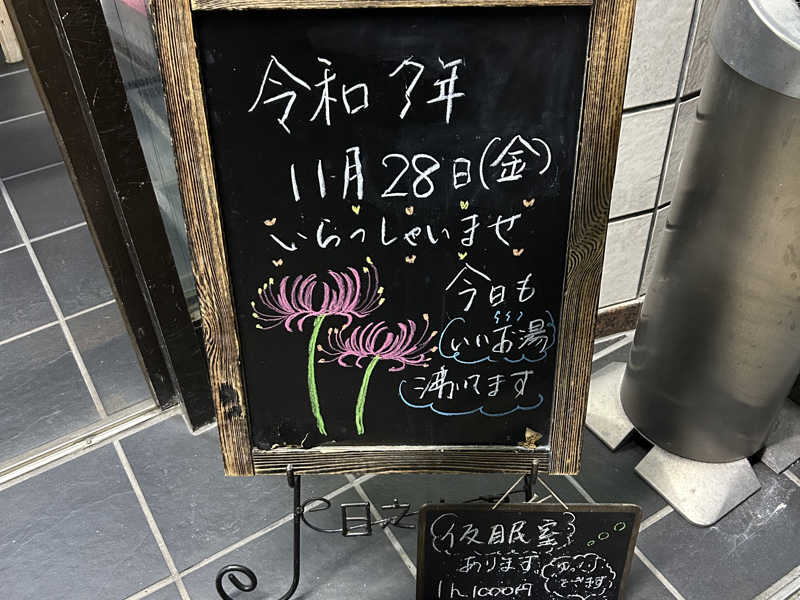 令和7年
11月28日(金)
いらっしゃいませ
今日も
いいお湯
沸いてます
仮眠室
あります。
ゆっくり
できます
1h 1000円